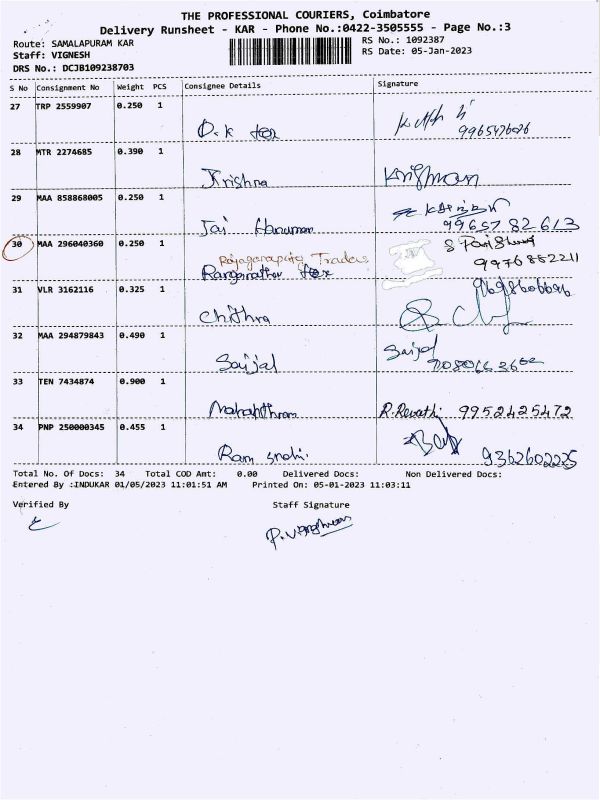 THE PROFESSIONAL COURIERS, Coimbatore
Delivery Runsheet - KAR - Phone No.:0422-3505555 - Page No.:3
Route: SAMALAPURAM KAR
RS No.: 1092387
Staff: VIGNESH
RS Date: 05-Jan-2023
DRS No.: DCJB109238703
S No Consignment No Weight PCS Consignee Details Signature
27 TRP 2559907 0.250 1
O.K tex
28 MTR 2274685 0.390 1
Krishna
29 MAA 858868005 0.250 1
Jai Hanuman 9965782613
30 MAA 296040360 0.250 1
Traders
Ranganathar tex 9976852211
31 VLR 3162116 0.325 1
Chithra
32 MAA 294879843 0.490 1
Saijal Saijal
33 TEN 7434874 0.900 1
R.Revathi 9952425472
34 PNP 250000345 0.455 1
Ram snehi. 9362602225
Total No. Of Docs: 34 Total COD Amt: 0.00 Delivered Docs: Non Delivered Docs:
Entered By :INDUKAR 01/05/2023 11:01:51 AM Printed On: 05-01-2023 11:03:11
Verified By Staff Signature